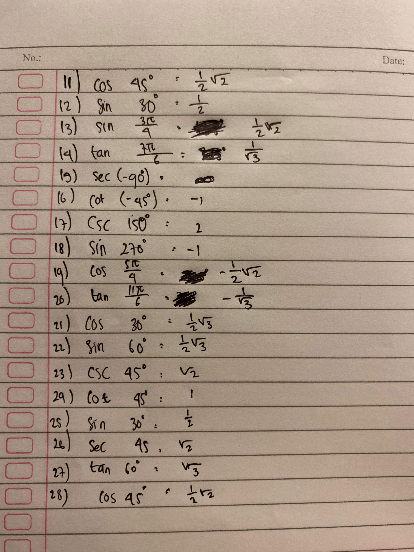 No.: Date:
11) cos 45° = 1/2 √2
12) sin 30° = 1/2
13) sin 3π/4 = 1/2 √2
14) tan 7π/6 = 1/√3
15) sec (-90°) = ∞
16) cot (-45°) = -1
17) CSC 150° = 2
18) sin 270° = -1
19) cos 5π/4 = -1/2 √2
20) tan 11π/6 = -1/√3
21) cos 30° = 1/2 √3
22) sin 60° = 1/2 √3
23) CSC 45° = √2
24) cot 45° = 1
25) sin 30° = 1/2
26) sec 45 = √2
27) tan 60° = √3
28) cos 45° = 1/2 √2